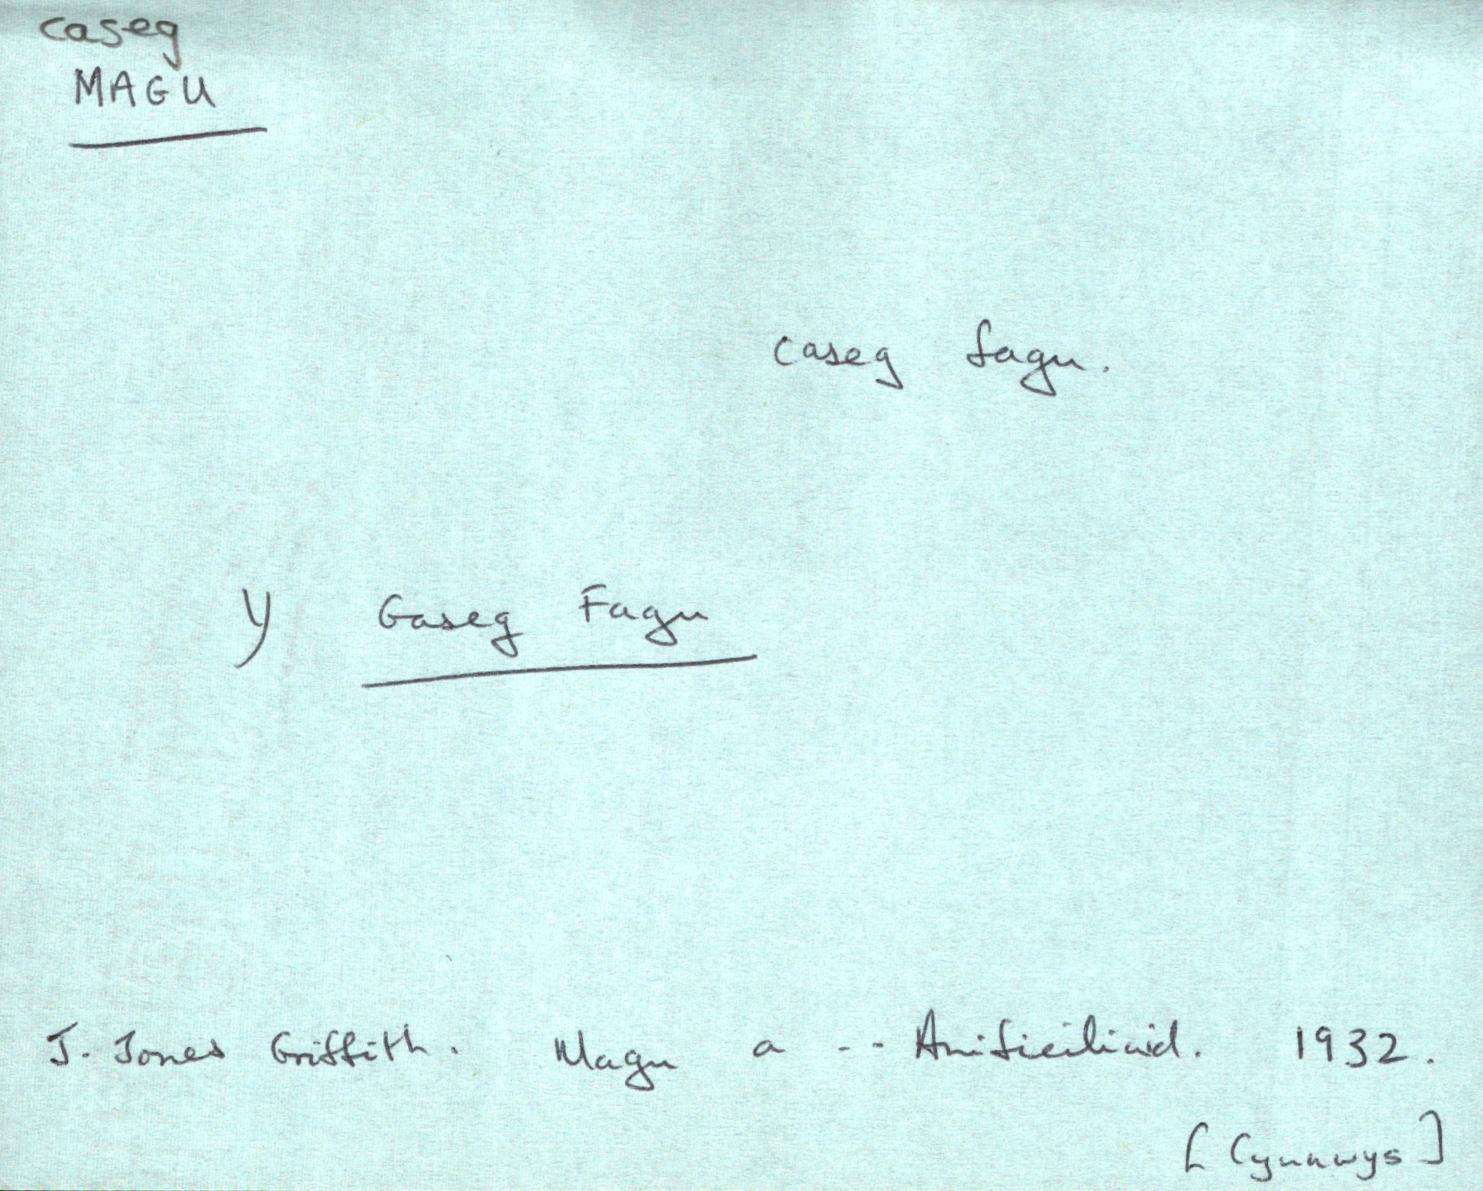 caseg
MAGU
caseg fagu.
Y Gaseg Fagu
J. Jones Griffith. Magu a -- Anifeiliaid. 1932.
[Cynnwys]